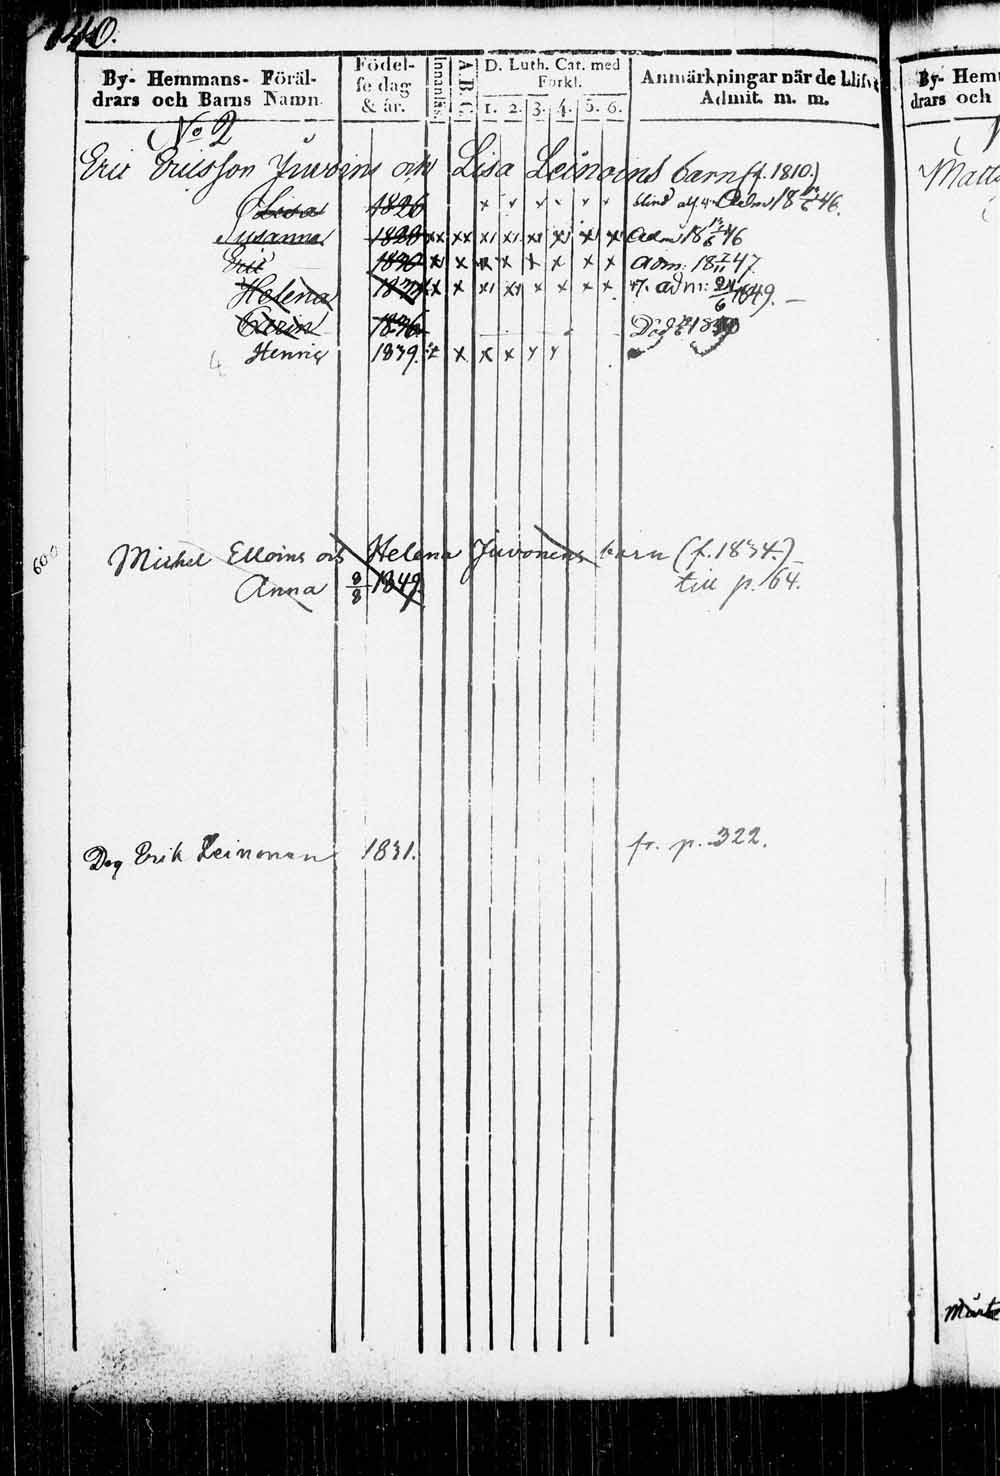 140.
By- Hemmans- Föräl-
drars och Barns Namn.
Födel-
se dag
& år.
Innanläs.
A.B.C.
D. Luth. Cat. med
Förkl.
1. 2. 3. 4. 5. 6.
Anmärkningar när de blifvi
Admit. m. m.
No 2
Eric Ericsson Juvoins och Lisa Leinoins barn (f. 1810.)
Lisa 1826 x x x x x x blind Adm 18 46.
Susanna 1828 xx xx x x x x x x adm 18 46
Eric 1830 x x x x x x x x adm: 18 47.
Helena x x x x x x x adm: 24/6 1849. —
Carin 1836 Död
4 Henric 1839. x x x x
600
Michel Elloins och Helena Juvonens barn (f. 1834.)
Anna 8/8 1849. till p. 64.
Drg Erik Leinonen 1831. fr. p. 322.
By- Hem
drars och
Matts
Mårte